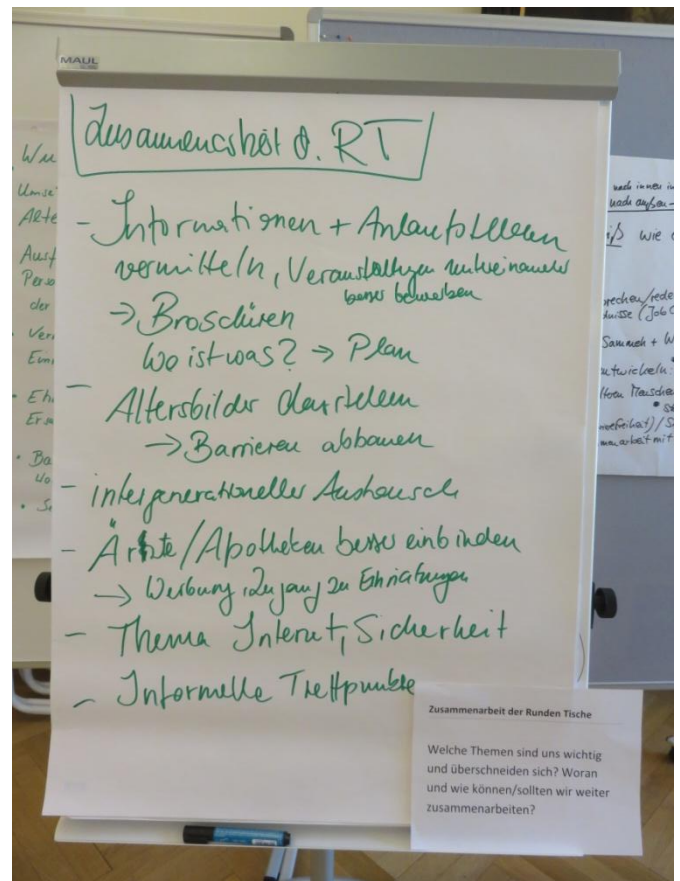 MAUL
Zusammenarbeit d. RT
- Informationen + Anlaufstellen
vermitteln, Veranstaltungen untereinander
besser bewerben
→ Broschüren
Wo ist was? → Plan
- Altersbilder darstellen
→ Barrieren abbauen
- intergenerationeller Austausch
- Ärzte/Apotheken besser einbinden
→ Werbung, Zugang zu Einrichtungen
- Thema Internet, Sicherheit
- Informelle Treffpunkte
Zusammenarbeit der Runden Tische
Welche Themen sind uns wichtig
und überschneiden sich? Woran
und wie können/sollten wir weiter
zusammenarbeiten?
Umse
Alte
Perso
der
nach innen
nach außen
wie
Sammeln + W